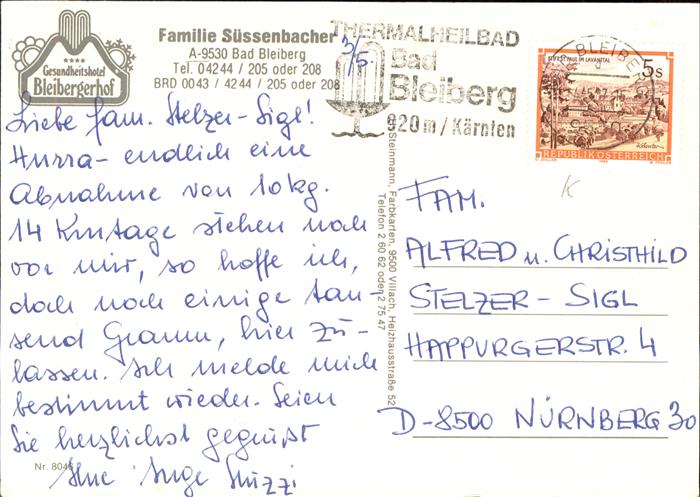 Gesundheitshotel
Bleibergerhof
Familie Süssenbacher
A-9530 Bad Bleiberg
Tel. 04244 / 205 oder 208
BRD 0043 / 4244 / 205 oder 208
3/5.
THERMALHEILBAD
Bad
Bleiberg
920 m / Kärnten
BLEIBERG
STIFT ST. PAUL IM LAVANTTAL
5 S
REPUBLIK ÖSTERREICH
Liebe Fam. Stelzer-Sigl!
Hurra - endlich eine
Abnahme von 10 kg.
14 Kurtage stehen noch
vor mir, so hoffe ich,
doch noch einige tau-
send Gramm, hier zu-
lassen. Ich melde mich
bestimmt wieder. Seien
Sie herzlichst gegrüßt
Ihre Inge
Nr. 8046
Steinmann, Farbkarten, 9500 Villach, Heizhausstraße 52
Telefon 2 60 62 oder 2 75 47
K
FAM.
ALFRED u. CHRISTHILD
STELZER - SIGL
HAPPURGERSTR. 4
D-8500 NÜRNBERG 30